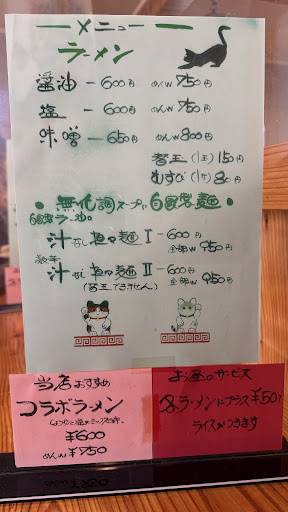 メニュー
ラーメン
醤油 - 600円 めんW 750円
塩 - 600円 めんW 750円
味噌 - 650円 めんW 800円
替玉(1玉) 150円
むすび(1ケ) 80円
・無化調スープ、自家製麺・
自家製ラー油。
汁なし担々麺 I - 600円 全部W 950円
汁なし担々麺 II - 600円 全部W 950円
(替玉できません)
当店おすすめ
コラボラーメン
¥600
めんW ¥750
お昼のサービス
各ラーメンにプラス¥50で
ライスがつきます